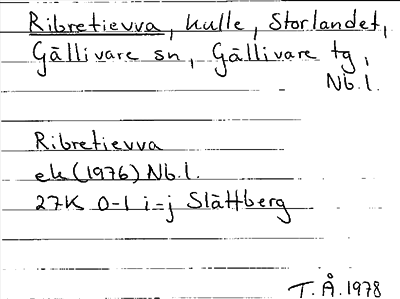 Ribretievva, kulle, Storlandet,
Gällivare sn, Gällivare tg,
Nb.l.
Ribretievva
ek (1976) Nb.l.
27K 0-1 i-j Slättberg
T.Å. 1978